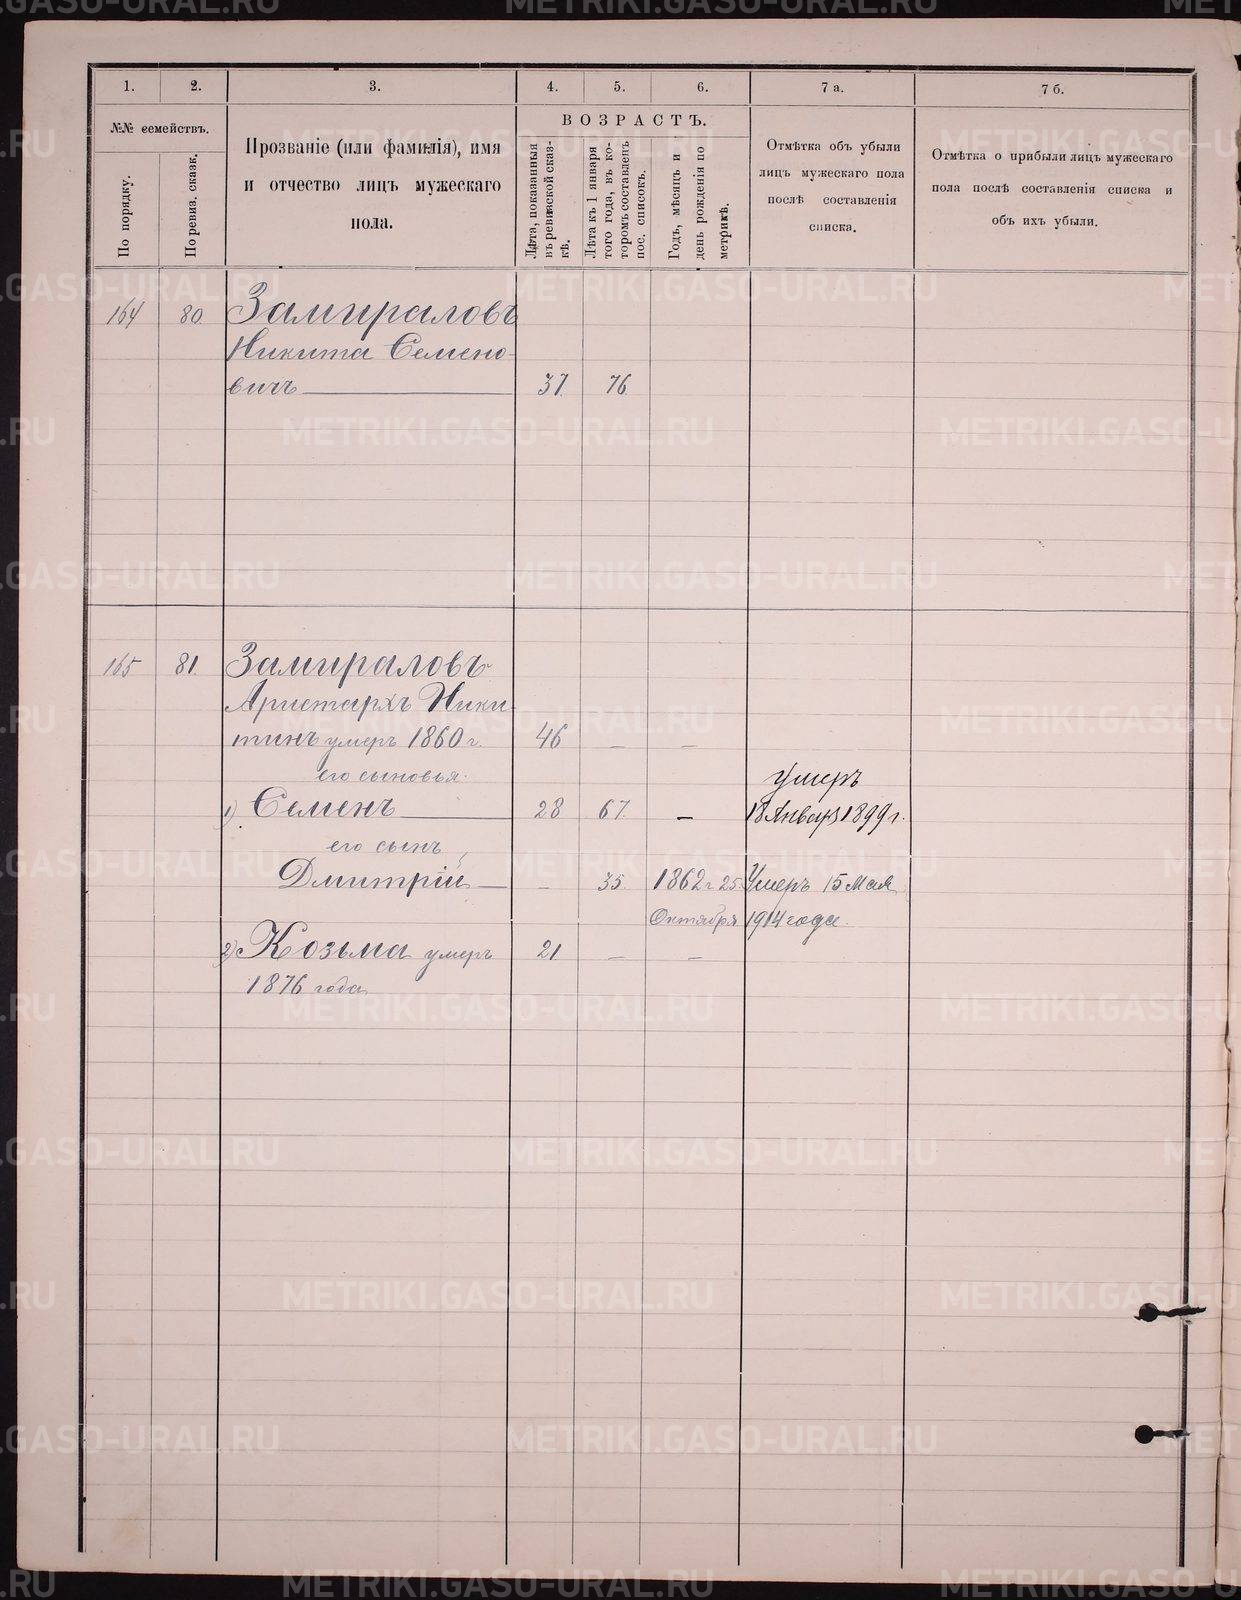 1.
2.
3.
4.
5.
6.
7 а.
7 б.
№№ семействъ.
По порядку.
По ревиз. сказк.
Прозваніе (или фамилія), имя
и отчество лицъ мужескаго
пола.
ВОЗРАСТЪ.
Лѣта, показанныя
въ ревизской сказ-
кѣ.
Лѣта къ 1 января
того года, въ ко-
торомъ составленъ
пос. списокъ.
Годъ, мѣсяцъ и
день рожденія по
метрикѣ.
Отмѣтка объ убыли
лицъ мужескаго пола
послѣ составленія
списка.
Отмѣтка о прибыли лицъ мужескаго
пола послѣ составленія списка и
объ ихъ убыли.
164 80 Замираловъ
Никита Семено-
вичъ 37. 76.
165 81. Замираловъ
Аристархъ Ники
тинъ умеръ 1860 г. 46 — —
его сыновья.
умеръ
1) Семенъ 28 67. — 18 Января 1899 г.
его сынъ
Дмитрій — — 35. 1862 г. 25. Умеръ 15 Мая
Октября 1914 года.
2) Козьма умеръ 21 — —
1876 года
METRIKI.GASO-URAL.RU